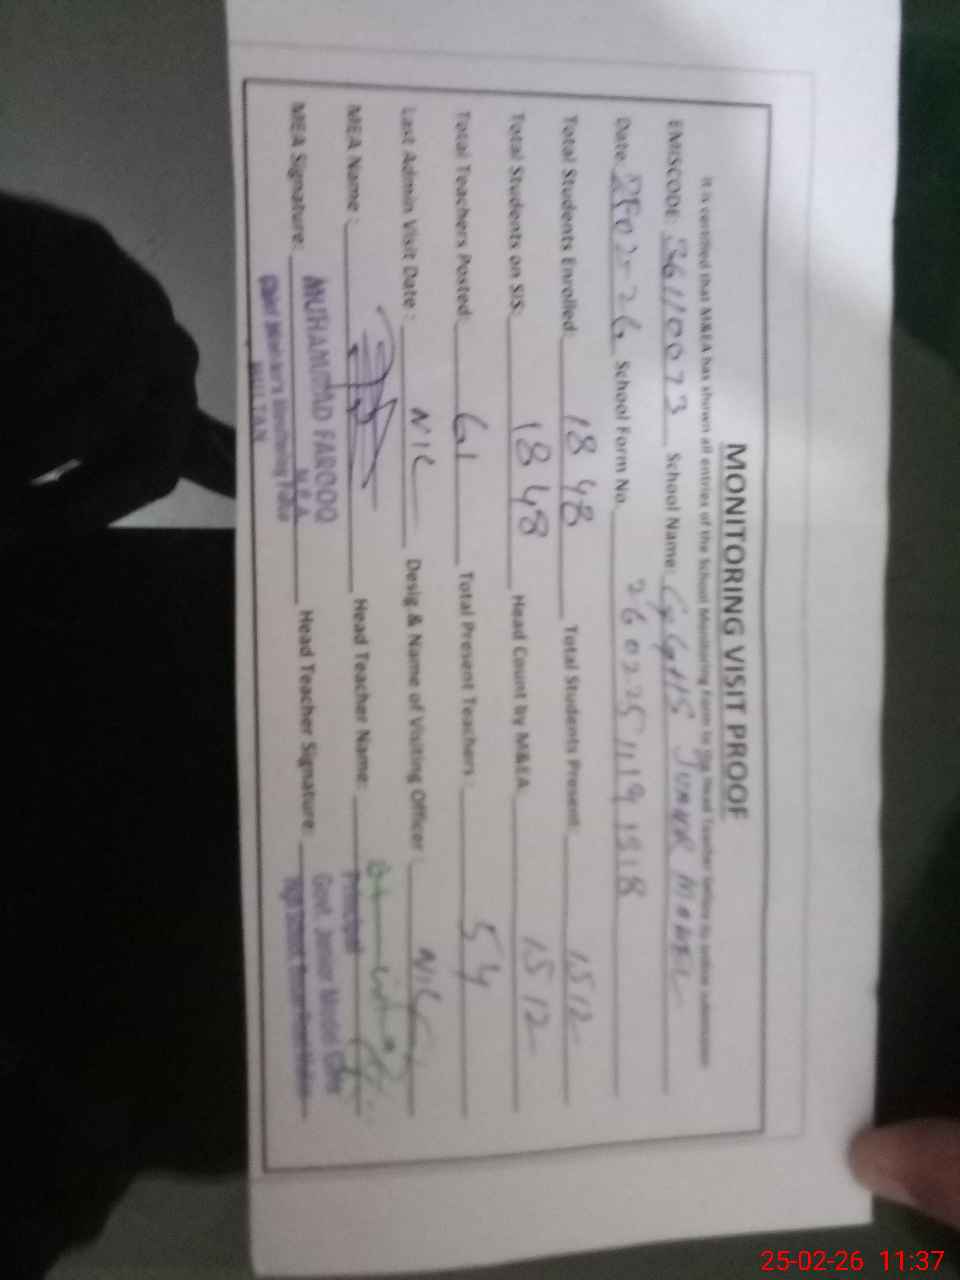 MONITORING VISIT PROOF
It is certified that M&EA has shown all entries of the School Monitoring Form to the Head Teacher before its online submission
EMISCODE 36110073 School Name: GGHS JUNIOR MODEL
Date 25-02-26 School Form No. 26022511191518
Total Students Enrolled: 1848 Total Students Present: 1512
Total Students on SIS: 1848 Head Count by M&EA 1512
Total Teachers Posted: 61 Total Present Teachers: 54
Last Admin Visit Date: NIL Desig & Name of Visiting Officer: NIL
MEA Name: Head Teacher Name:
Principal
MUHAMMAD FAROOQ Govt. Junior Model Girls
M.E.A
MEA Signature: Head Teacher Signature:
Chief Minister's Monitoring Force
MULTAN
25-02-26 11:37